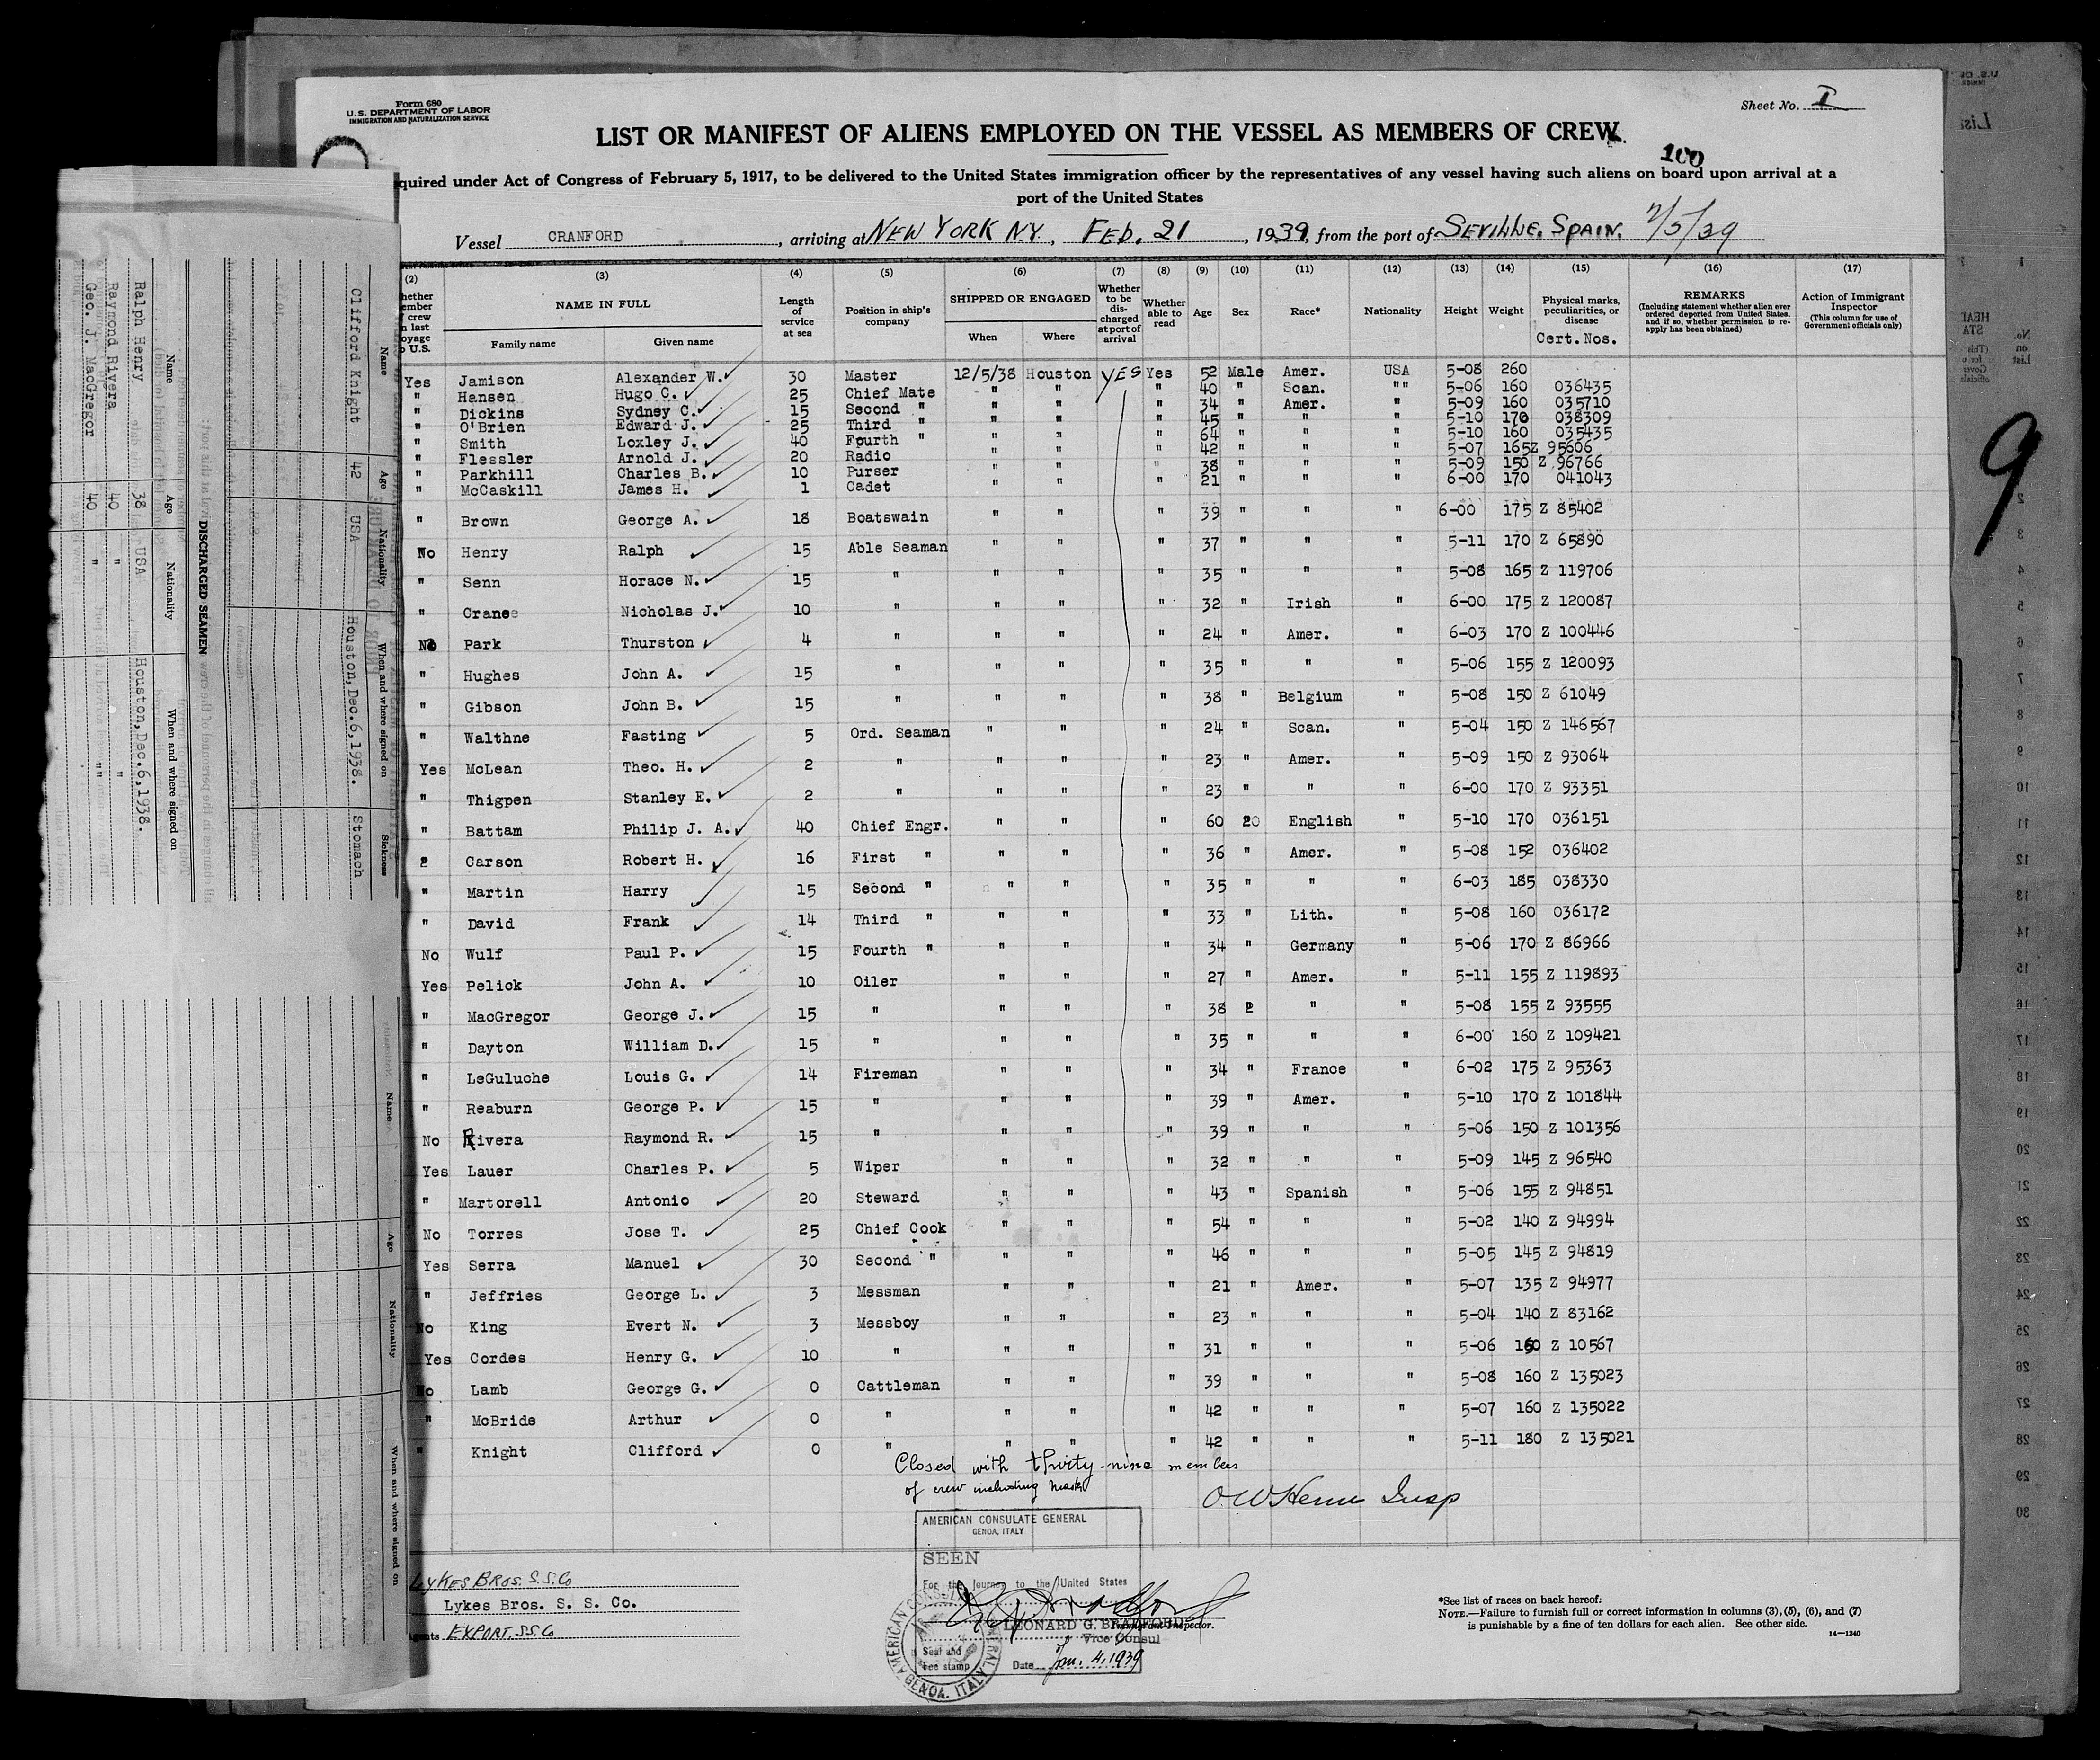 Form 680
U.S. DEPARTMENT OF LABOR
IMMIGRATION AND NATURALIZATION SERVICE
Sheet No. I
LIST OR MANIFEST OF ALIENS EMPLOYED ON THE VESSEL AS MEMBERS OF CREW.
100
quired under Act of Congress of February 5, 1917, to be delivered to the United States immigration officer by the representatives of any vessel having such aliens on board upon arrival at a
port of the United States
Vessel CRANFORD, arriving at NEW YORK N.Y., FEB. 21, 1939, from the port of SEVILLE, SPAIN.
(2) (3) (4) (5) (6) (7) (8) (9) (10) (11) (12) (13) (14) (15) (16) (17)
NAME IN FULL Family name Given name Length of service at sea Position in ship's company SHIPPED OR ENGAGED When Where Whether to be discharged at port of arrival Whether able to read Age Sex Race* Nationality Height Weight Physical marks, peculiarities, or disease Cert. Nos. REMARKS (Including statement whether alien ever ordered deported from United States, and if so, whether permission to reapply has been obtained) Action of Immigrant Inspector (This column for use of Government officials only)
Yes Jamison Alexander W. 30 Master 12/5/38 Houston YES Yes 52 Male Amer. USA 5-08 260
" Hansen Hugo C. 25 Chief Mate " " " 40 " Scan. "" 5-06 160 036435
" Dickins Sydney C. 15 Second " " " " 34 " Amer. " 5-09 160 035710
" O'Brien Edward J. 25 Third " " " " 45 " " " 5-10 170 038309
" Smith Loxley J. 40 Fourth " " " " 64 " " " 5-10 160 035435
" Flessler Arnold J. 20 Radio " " " 42 " " " 5-07 165 Z 95606
" Parkhill Charles B. 10 Purser " " " 38 " " " 5-09 150 Z 96766
" McCaskill James H. 1 Cadet " " " 21 " " " 6-00 170 041043
" Brown George A. 18 Boatswain " " " 39 " " " 6-00 175 Z 85402
No Henry Ralph 15 Able Seaman " " " 37 " " " 5-11 170 Z 65890
" Senn Horace N. 15 " " " " 35 " " " 5-08 165 Z 119706
" Crane Nicholas J. 10 " " " " 32 " Irish " 6-00 175 Z 120087
No Park Thurston 4 " " " " 24 " Amer. " 6-03 170 Z 100446
" Hughes John A. 15 " " " " 35 " " " 5-06 155 Z 120093
" Gibson John B. 15 " " " " 38 " Belgium " 5-08 150 Z 61049
" Walthne Fasting 5 Ord. Seaman " " " 24 " Scan. " 5-04 150 Z 146567
Yes McLean Theo. H. 2 " " " " 23 " Amer. " 5-09 150 Z 93064
" Thigpen Stanley E. 2 " " " " 23 " " " 6-00 170 Z 93351
" Battam Philip J. A. 40 Chief Engr. " " " 60 20 English " 5-10 170 036151
2 Carson Robert H. 16 First " " " " 36 " Amer. " 5-08 152 036402
" Martin Harry 15 Second " " " " 35 " " " 6-03 185 038330
" David Frank 14 Third " " " " 33 " Lith. " 5-08 160 036172
No Wulf Paul P. 15 Fourth " " " " 34 " Germany " 5-06 170 Z 86966
Yes Pelick John A. 10 Oiler " " " 27 " Amer. " 5-11 155 Z 119893
" MacGregor George J. 15 " " " " 38 2 " " 5-08 155 Z 93555
" Dayton William D. 15 " " " " 35 " " " 6-00 160 Z 109421
" LeGuluche Louis G. 14 Fireman " " " 34 " France " 6-02 175 Z 95363
" Reaburn George P. 15 " " " " 39 " Amer. " 5-10 170 Z 101844
No Rivera Raymond R. 15 " " " " 39 " " " 5-06 150 Z 101356
Yes Lauer Charles P. 5 Wiper " " " 32 " " " 5-09 145 Z 96540
" Martorell Antonio 20 Steward " " " 43 " Spanish " 5-06 155 Z 94851
No Torres Jose T. 25 Chief Cook " " " 54 " " " 5-02 140 Z 94994
Yes Serra Manuel 30 Second " " " " 46 " " " 5-05 145 Z 94819
" Jeffries George L. 3 Messman " " " 21 " Amer. " 5-07 135 Z 94977
No King Evert N. 3 Messboy " " " 23 " " " 5-04 140 Z 83162
Yes Cordes Henry G. 10 " " " " 31 " " " 5-06 Z 10567
No Lamb George G. 0 Cattleman " " " 39 " " " 5-08 160 Z 135023
" McBride Arthur 0 " " " " 42 " " " 5-07 160 Z 135022
" Knight Clifford 0 " " " " 42 " " " 5-11 180 Z 135021
Closed with thirty-nine members
of crew including Master
Insp
AMERICAN CONSULATE GENERAL
GENOA, ITALY
SEEN
For the journey to the United States
LEONARD G. BRADFORD
Vice Consul
Seal and
Fee stamp
Date Jan. 4, 1939
AMERICAN CONSULATE GENERAL GENOA, ITALY
LYKES BROS. S.S. Co
Lykes Bros. S. S. Co.
EXPORT. S.S. Co
*See list of races on back hereof.
NOTE.—Failure to furnish full or correct information in columns (3), (5), (6), and (7)
is punishable by a fine of ten dollars for each alien. See other side.
14—1240
9
Name Age Nationality When and where signed on Sickness
Clifford Knight 42 USA Houston, Dec. 6, 1938. Stomach
DISCHARGED SEAMEN
Name Age Nationality When and where signed on
Ralph Henry 38 USA Houston, Dec. 6, 1938.
Raymond Rivera 40 " "
Geo. J. MacGregor 40 " ""
Name Age Nationality When and where signed on